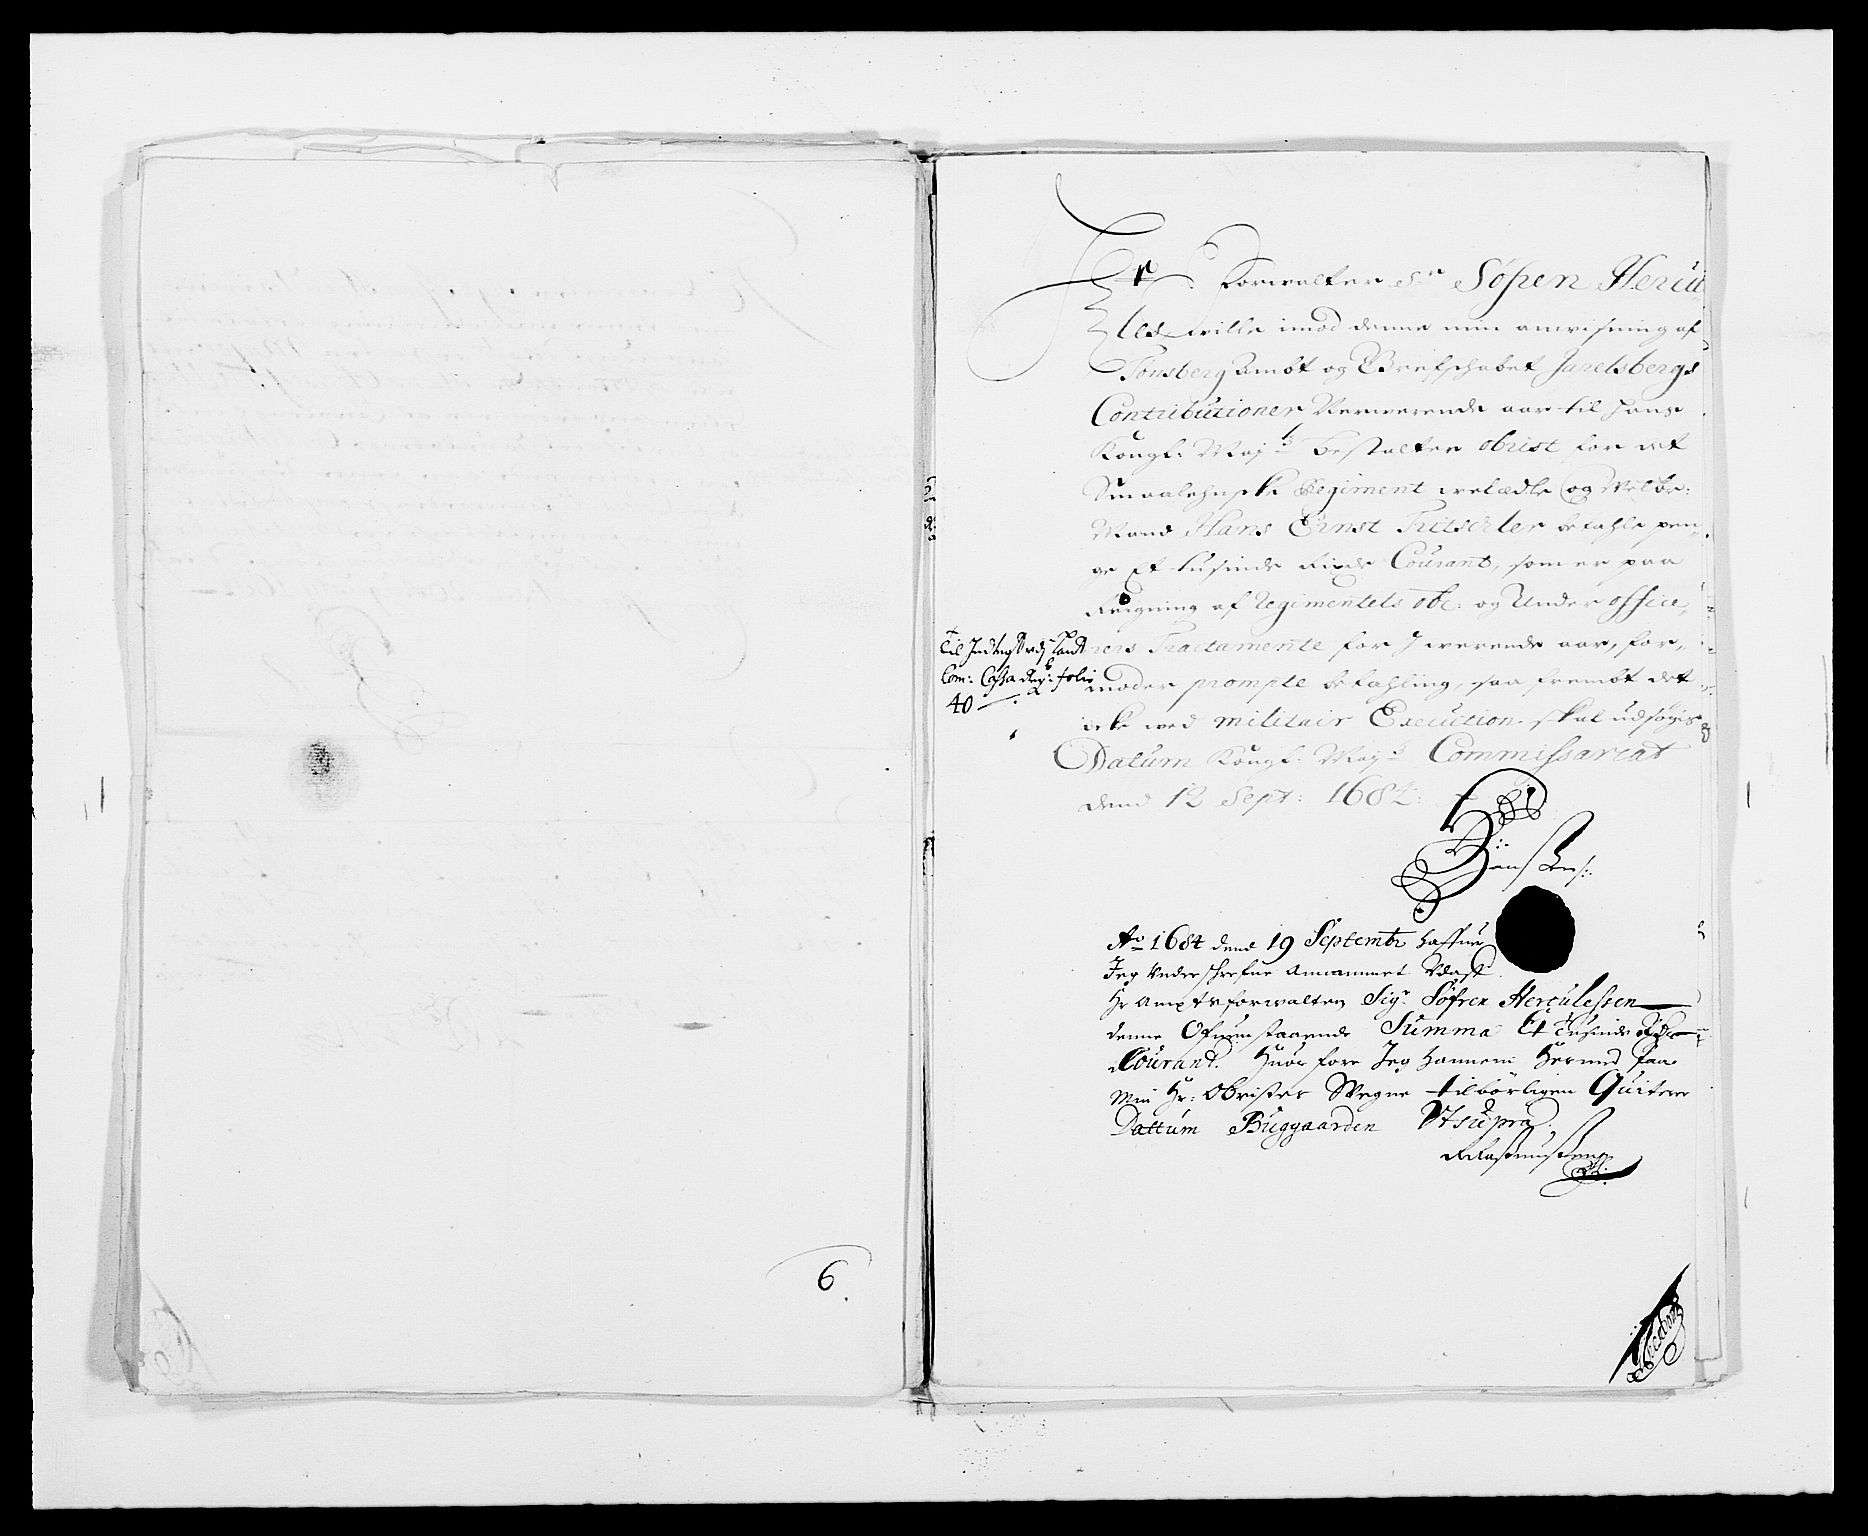 Hr. Forwalter Sr. Søfren Hercu
lls. wille imod denne min anwisning af
Tønsberg Ambt og Grefschabet Jarelsbergs
Contributioner Nerwerende aar til Hans
Kongl: Maj:ts bestalter obrist for det
Smaalehnske Regiment welædle og Velbr:
Mand Hans Ernst Tritschler betahle pen-
ge Et tusinde Rixdr Courant, som er paa
Reigning af Regimentets obr: og Under office,
rers Tractamente for J werende aar, for,,
moder prompte betahling, saa frembt det
icke wed militair Execution skal udsøgis
Datum Kongl: Maj:ts Commissariat
dend 12 Sept: 1684:
Til Indtegt wdj Land
Com: Cassa Reg: folio
40
Ao 1684 dend 19 Septembr Haffuer
Jeg Underschrefne Annammet
Hr Amptsforwalter Sigr. Søfren Herculessen
denne Ofuenstaaende Summa Et Tusinde Rdr
Courant. Huor fore Jeg hannem Hermed paa
Min Hr: Obristes Wegne tilbørligen Quiterer
Dattum Buggaarden Vtsupra.
6.